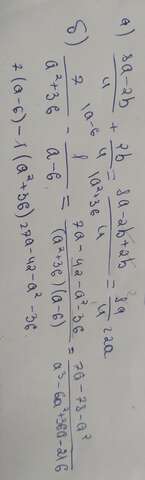 а) 8a-2b/4 + 2b/4 = 8a-2b+2b/4 = 8a/4 = 2a
б) 7/a²+36 |a-6 - 1/a-6 |a²+36 = 7a-42-a²-36/(a²+36)(a-6) = 7a-78-a²/a³-6a²+36a-216
7(a-6)-1(a²+36)=7a-42-a²-36